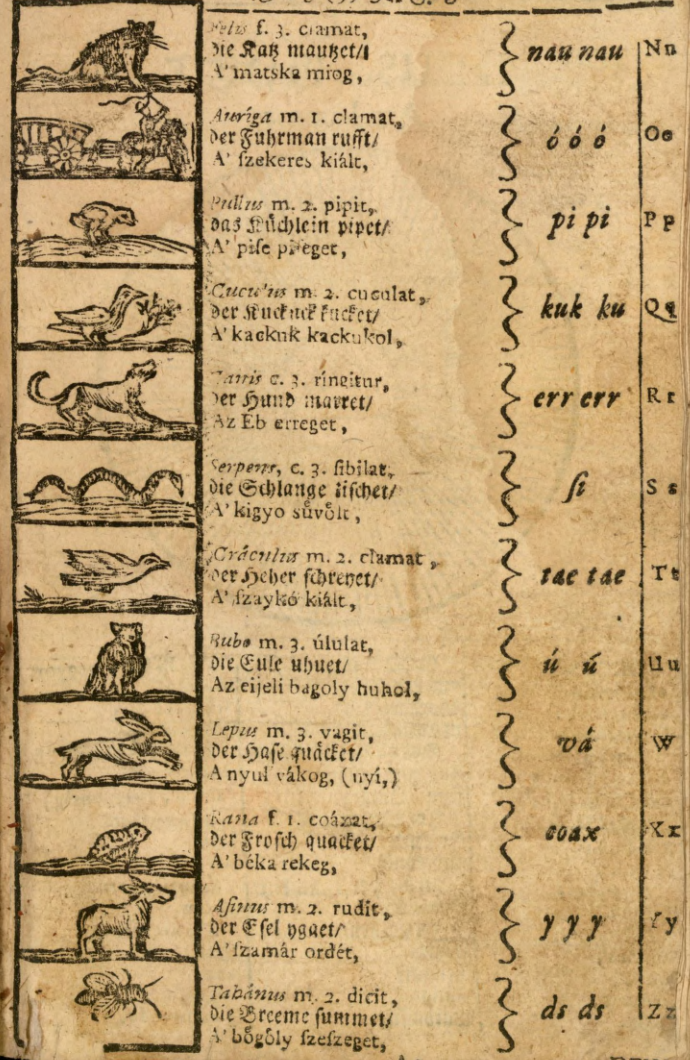 Felis f. 3. clamat,
die Katz mautzet/
A' matska miog,
nau nau
Nn
Auriga m. 1. clamat,
der Fuhrman rufft/
A' ſzekeres kiált,
ó ó ó
Oo
Pullus m. 2. pipit,
das Küchlein pipet/
A' piſe pipeget,
pi pi
Pp
Cuculus m. 2. cuculat,
der Kuckuck kucket/
A' kackuk kackukol,
kuk ku
Qq
Canis c. 3. ringitur,
der Hund marret/
Az Eb erreget,
err err
Rr
Serpens, c. 3. ſibilat,
die Schlange ziſchet/
A' kigyo sűvőlt,
ſi
Ss
Gráculus m. 2. clamat,
der Heher ſchreyet/
A' ſzaykó kiált,
tae tae
Tt
Bubo m. 3. úlulat,
die Eule uhuet/
Az eijeli bagoly huhol,
ú ú
Uu
Lepus m. 3. vagit,
der Haſe quäcket/
A nyul vákog, (nyí,)
vá
W
Rana f. 1. coáxat,
der Froſch quacket/
A' béka rekeg,
coax
Xx
Aſinus m. 2. rudit,
der Eſel ygaet/
A' ſzamár ordét,
y y y
Yy
Tabánus m. 2. dicit,
die Breeme ſummet/
A' bőgőly ſzeſzeget,
ds ds
Zz